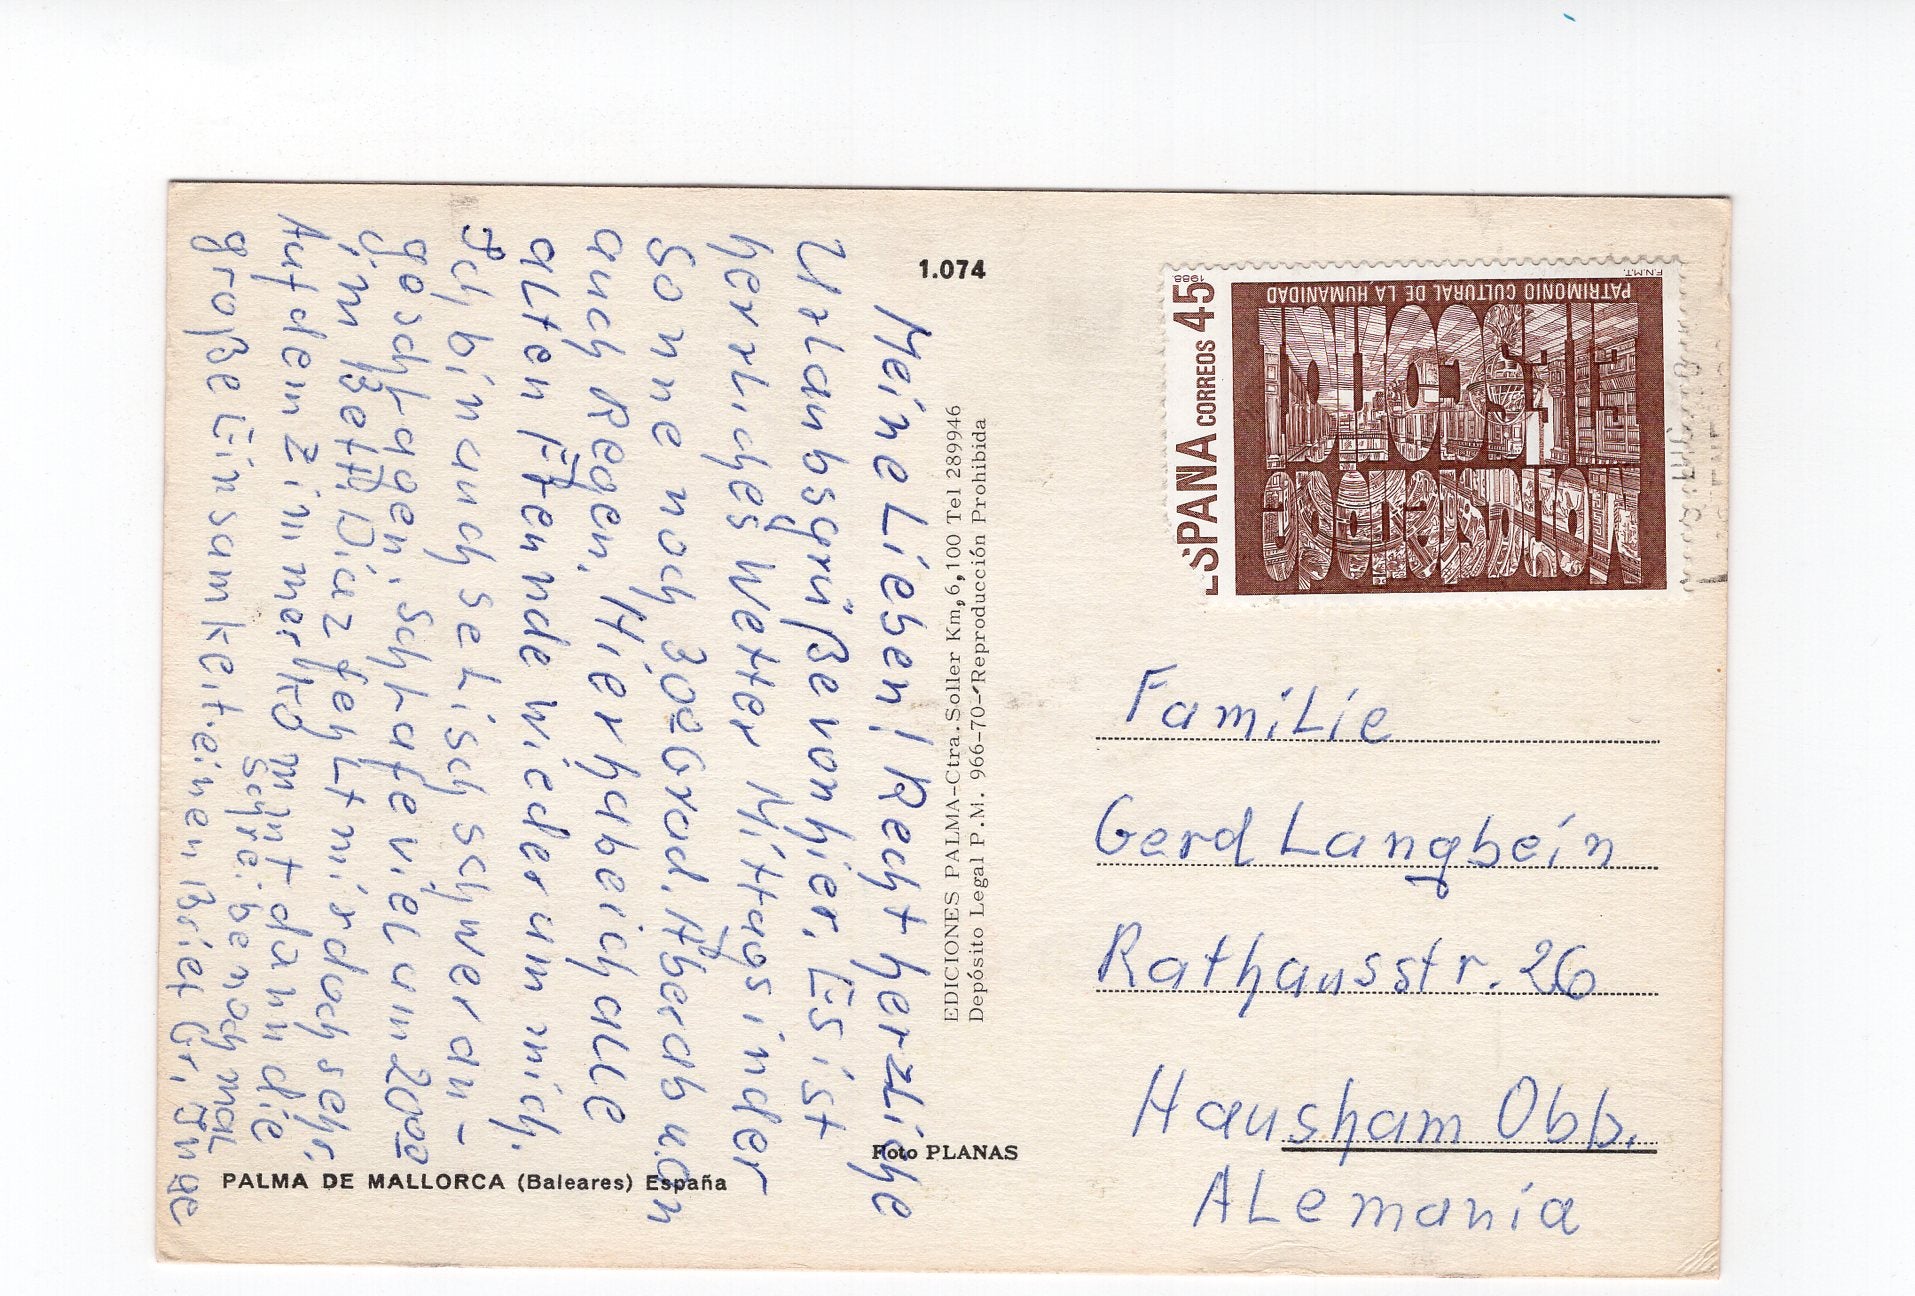 Meine Lieben! Recht herzliche
Urlaubsgrüße von hier. Es ist
herrliches Wetter Mittags in der
Sonne noch 30º Grad. Aber ab und an
auch Regen. Hier habe ich alle
alten Fr ende wieder um mich.
Ich bin auch seelisch schwer an-
geschlagen, schlafe viel um 20ºº
im Bett. Diaz fehlt mir doch sehr.
Auf dem Zimmer kommt dann die
große Einsamkeit.
Schreibe noch mal
einen Brief Gr. Inge
1.074
EDICIONES PALMA-Ctra. Soller Km, 6,100 Tel 289946
Depósito Legal P.M. 966-70-Reproducción Prohibida
Foto PLANAS
PALMA DE MALLORCA (Baleares) España
ESPAÑA CORREOS 45
1988
F.N.M.T.
PATRIMONIO CULTURAL DE LA HUMANIDAD
Familie
Gerd Langbein
Rathausstr. 26
Hausham Obb.
Alemania